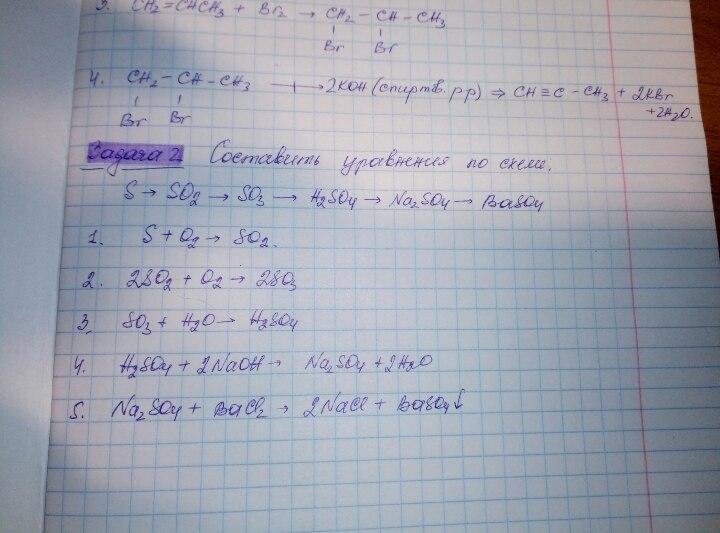 3. CH₂=CHCH₃ + Br₂ → CH₂ – CH – CH₃
Br Br
4. CH₂ – CH – CH₃ + → 2KOH (спиртов. р р) ⇒ CH ≡ C – CH₃ + 2KBr
Br Br +2H₂O.
Задача 2. Составить уравнения по схеме.
S → SO₂ → SO₃ → H₂SO₄ → Na₂SO₄ → BaSO₄
1. S + O₂ → SO₂.
2. 2SO₂ + O₂ → 2SO₃
3. SO₃ + H₂O → H₂SO₄
4. H₂SO₄ + 2NaOH → Na₂SO₄ + 2H₂O
5. Na₂SO₄ + BaCl₂ → 2NaCl + BaSO₄↓